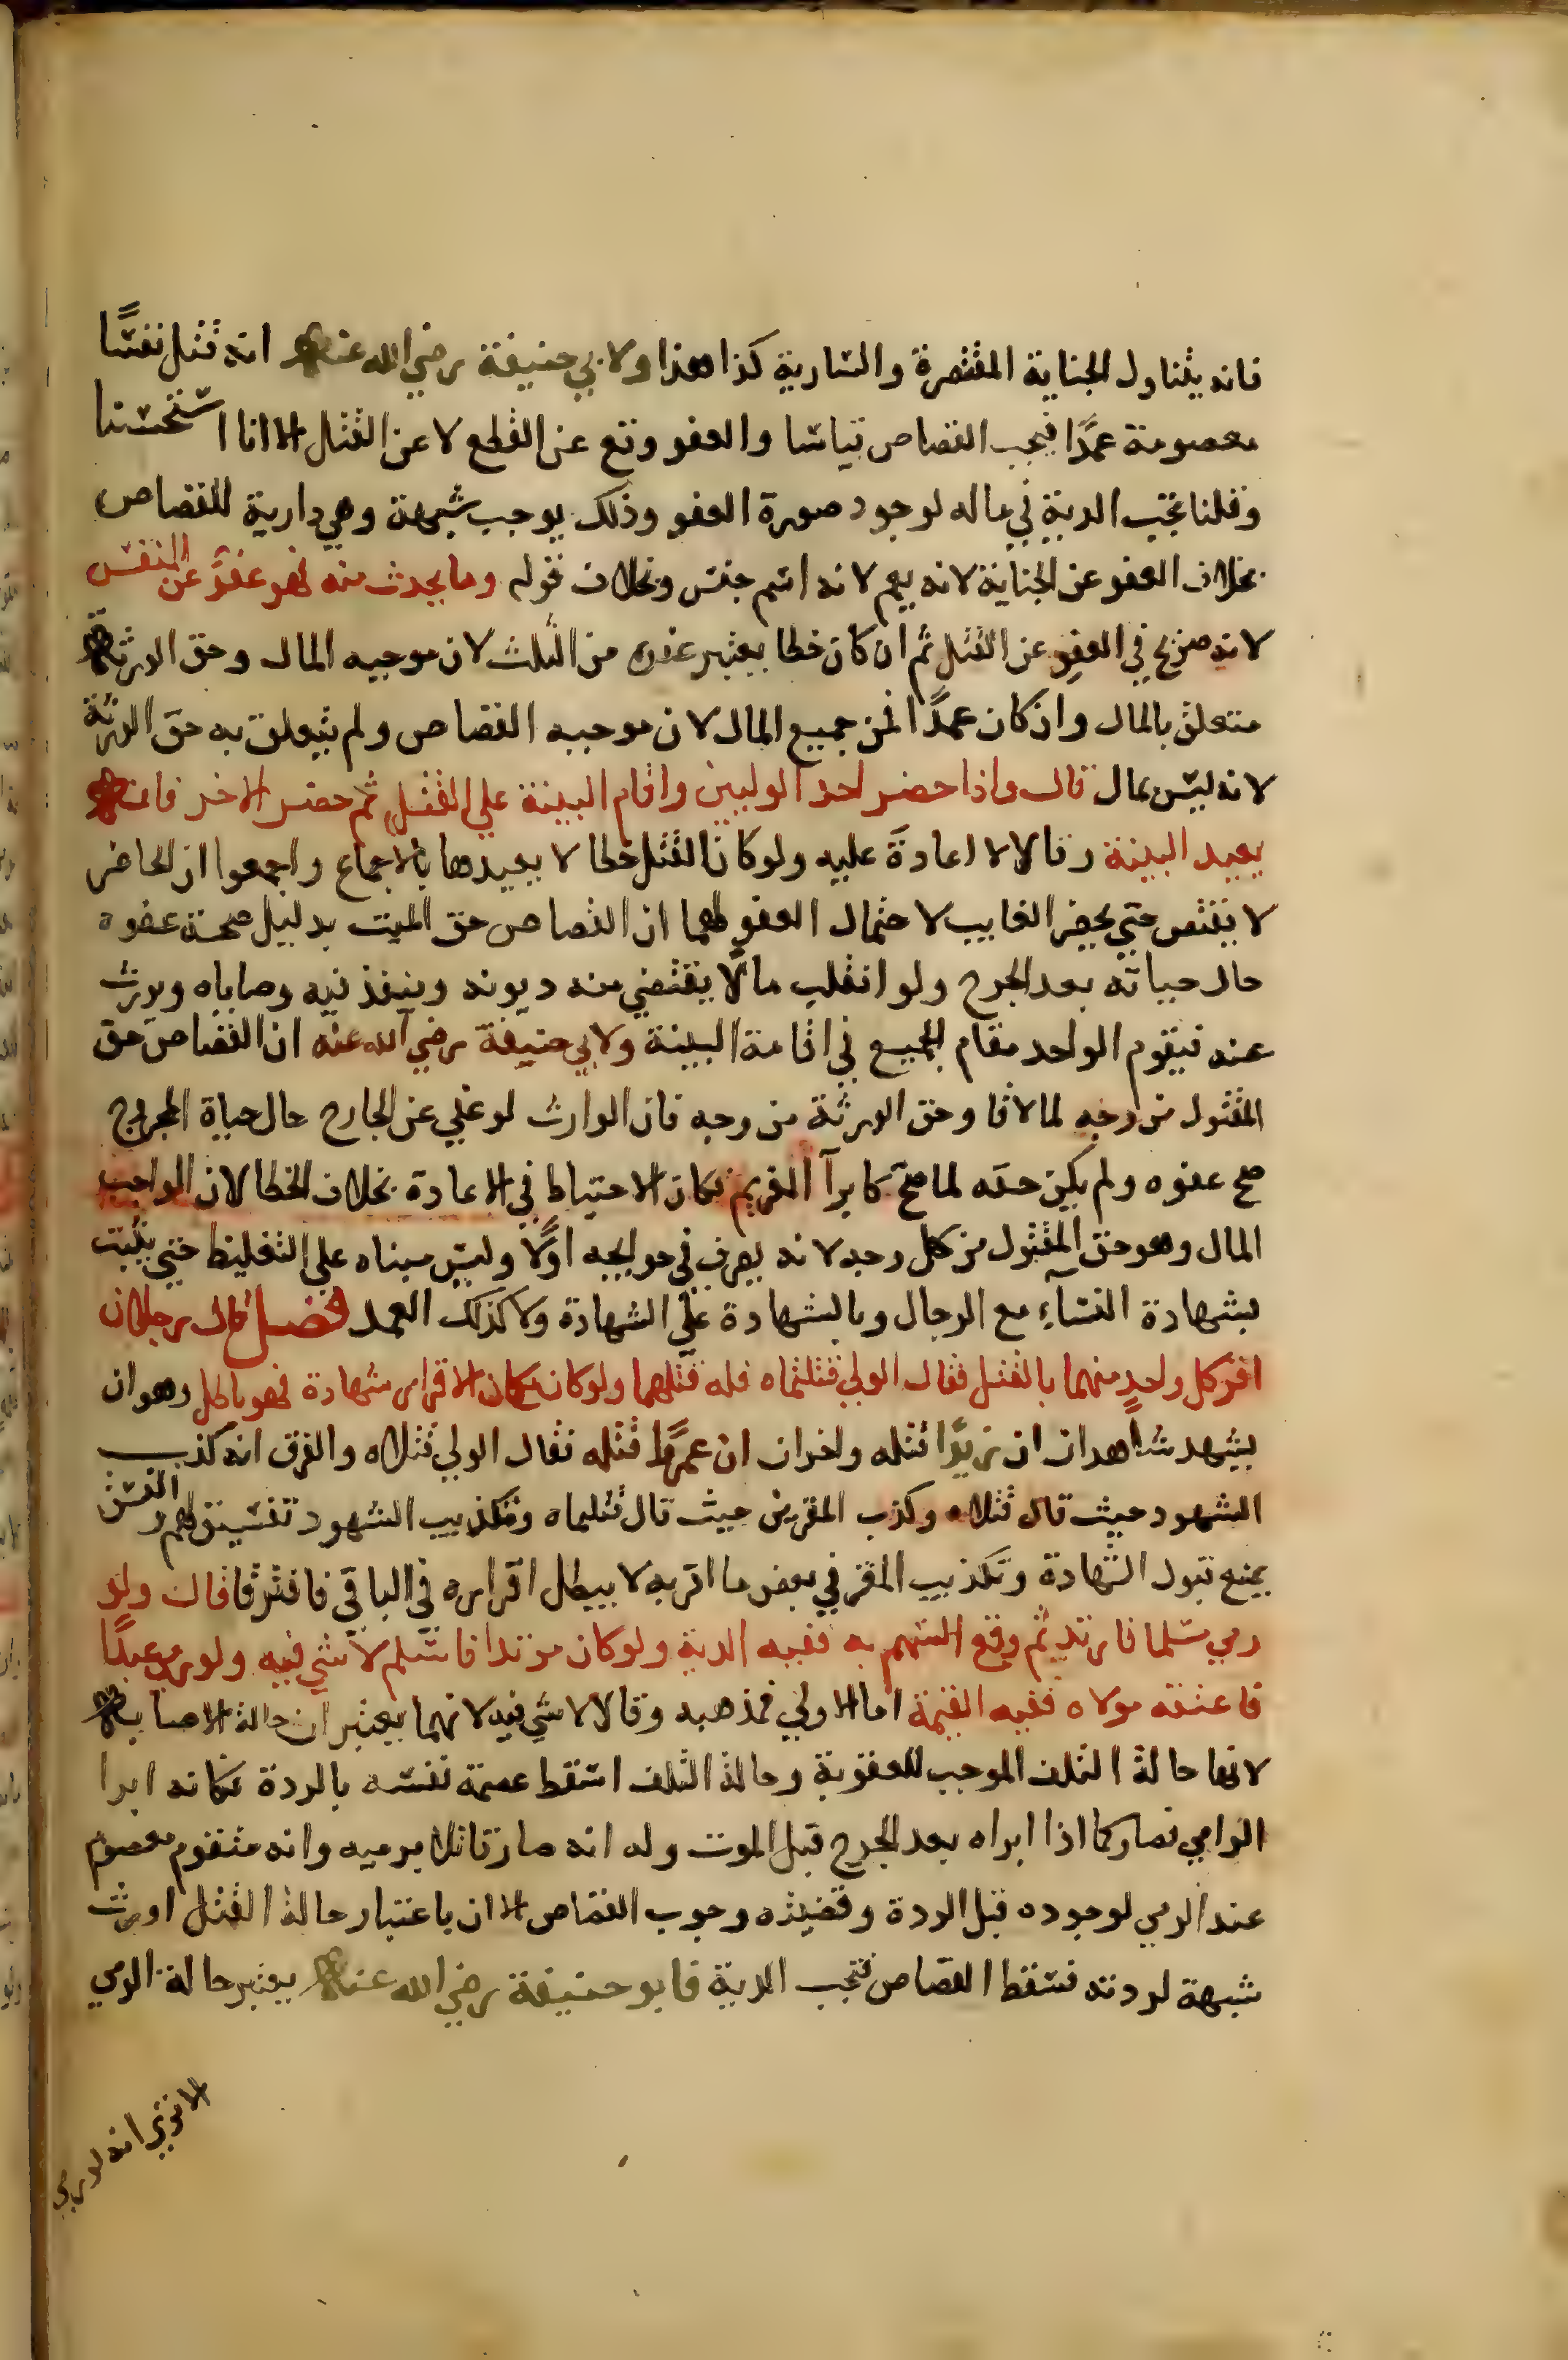 فانه يتناول الجناية المقتصرة والسارية كذا هذا ولابي حنيفة رضي الله عنه انه قتل نفسًا
معصومة عمدًا فيجب القصاص قياسا والعفو وقع عن القطع لا عن القتل الا انا استحسنا
وقلنا تجب الدية في ماله لوجود صورة العفو وذلك يوجب شبهة وهي دارية للقصاص
بخلاف العفو عن الجناية لانه يعم لانه اسم جنس وبخلاف قوله وما يحدث منه فهو عفوٌ عن النفس
لانه صريح في العفو عن القتل ثم ان كان خطا يعتبر عفوه من الثلث لان موجبه المال وحق الورثة
متعلق بالمال وان كان عمدًا فمن جميع المال لان موجبه القصاص ولم يتعلق به حق الورثة
لانه ليس بمال قال واذا حضر احد الوليين واقام البينة علي القتل ثم حضر الاخر فانه
يعيد البينة وقالا لا اعادة عليه ولو كان القتل خطا لا يعيدها بالاجماع واجمعوا ان الحاضر
لا يقتص حتي يحضر الغايب لاحتمال العفو لهما ان القصاص حق الميت بدليل صحة عفوه
حال حياته بعد الجرح ولو انقلب مالًا يقتضي منه ديونه وينفذ فيه وصاياه ويورث
عنه فيقوم الواحد مقام الجميع في اقامة البينة ولابي حنيفة رضي الله عنه ان القصاص حق
المقتول من وجه لما لاقا وحق الورثة من وجه فان الوارث لو عفي عن الجارح حال حياة المجروح
صح عفوه ولم يكن حقه لما صح كابرآ الغريم فكان الاحتياط في الاعادة بخلاف الخطا لان الواجب
المال وهو حق المقتول من كل وجه لانه يصرف في حوايجه اولًا وليس مبناه علي التغليظ حتي يثبت
بشهادة النسآء مع الرجال وبالشهادة علي الشهادة ولا كذلك العمد فصل قال رجلان
اقر كل واحدٍ منهما بالقتل فقال الولي قتلتماه فله قتلهما ولو كان مكان الاقرار شهادة فهو باطل وهو ان
يشهد شاهدان ان زيدًا قتله واخران ان عمرًا قتله فقال الولي قتلاه والفرق انه كذب
الشهود حيث قال قتلاه وكذب المقرين حيث قال قتلتماه وتكذيب الشهود تفسيق لهم والفسق
يمنع قبول الشهادة وتكذيب المقر في بعض ما اقر به لا يبطل اقراره في الباقي فافترقا قال ولو
رمي مسلما فارتد ثم وقع السهم به ففيه الدية ولو كان مرتدا فاسلم لا شي فيه ولو رمي عبدًا
فاعتقه مولاه ففيه القيمة اما الاولي فمذهبه وقالا لا شي فيه لانهما يعتبران حالة الاصابة
لانها حالة التلف الموجب للعقوبة وحالة التلف اسقط عصمة نفسه بالردة فكانه ابرا
الرامي فصار كما اذا ابراه بعد الجرح قبل الموت وله انه صار قاتلا برميه وانه متقوم معصوم
عند الرمي لوجوده قبل الردة وقضيته وجوب القصاص الا ان باعتبار حالة القتل اورث
شبهة لردته فسقط القصاص فتجب الدية فابو حنيفة رضي الله عنه يعتبر حالة الرمي
الا تري انه لو رمي